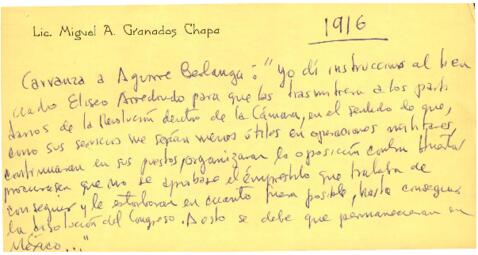 Lic. Miguel A. Granados Chapa
1916
Carranza a Aguirre Berlanga: "Yo dí instrucciones al licen
ciado Eliseo Arredondo para que las trasmitiera a los parti
darios de la Revolución dentro de la Cámara, en el sentido de que,
como sus servicios me serían menos útiles en operaciones militares,
continuaran en sus puestos, organizaran la oposición contra Huerta,
procurasen que no se aprobase el empréstito que trataba de
conseguir y le estorbaran en cuanto fuera posible, hasta conseguir
la disolución del Congreso. A esto se debe que permanecieran en
México..."